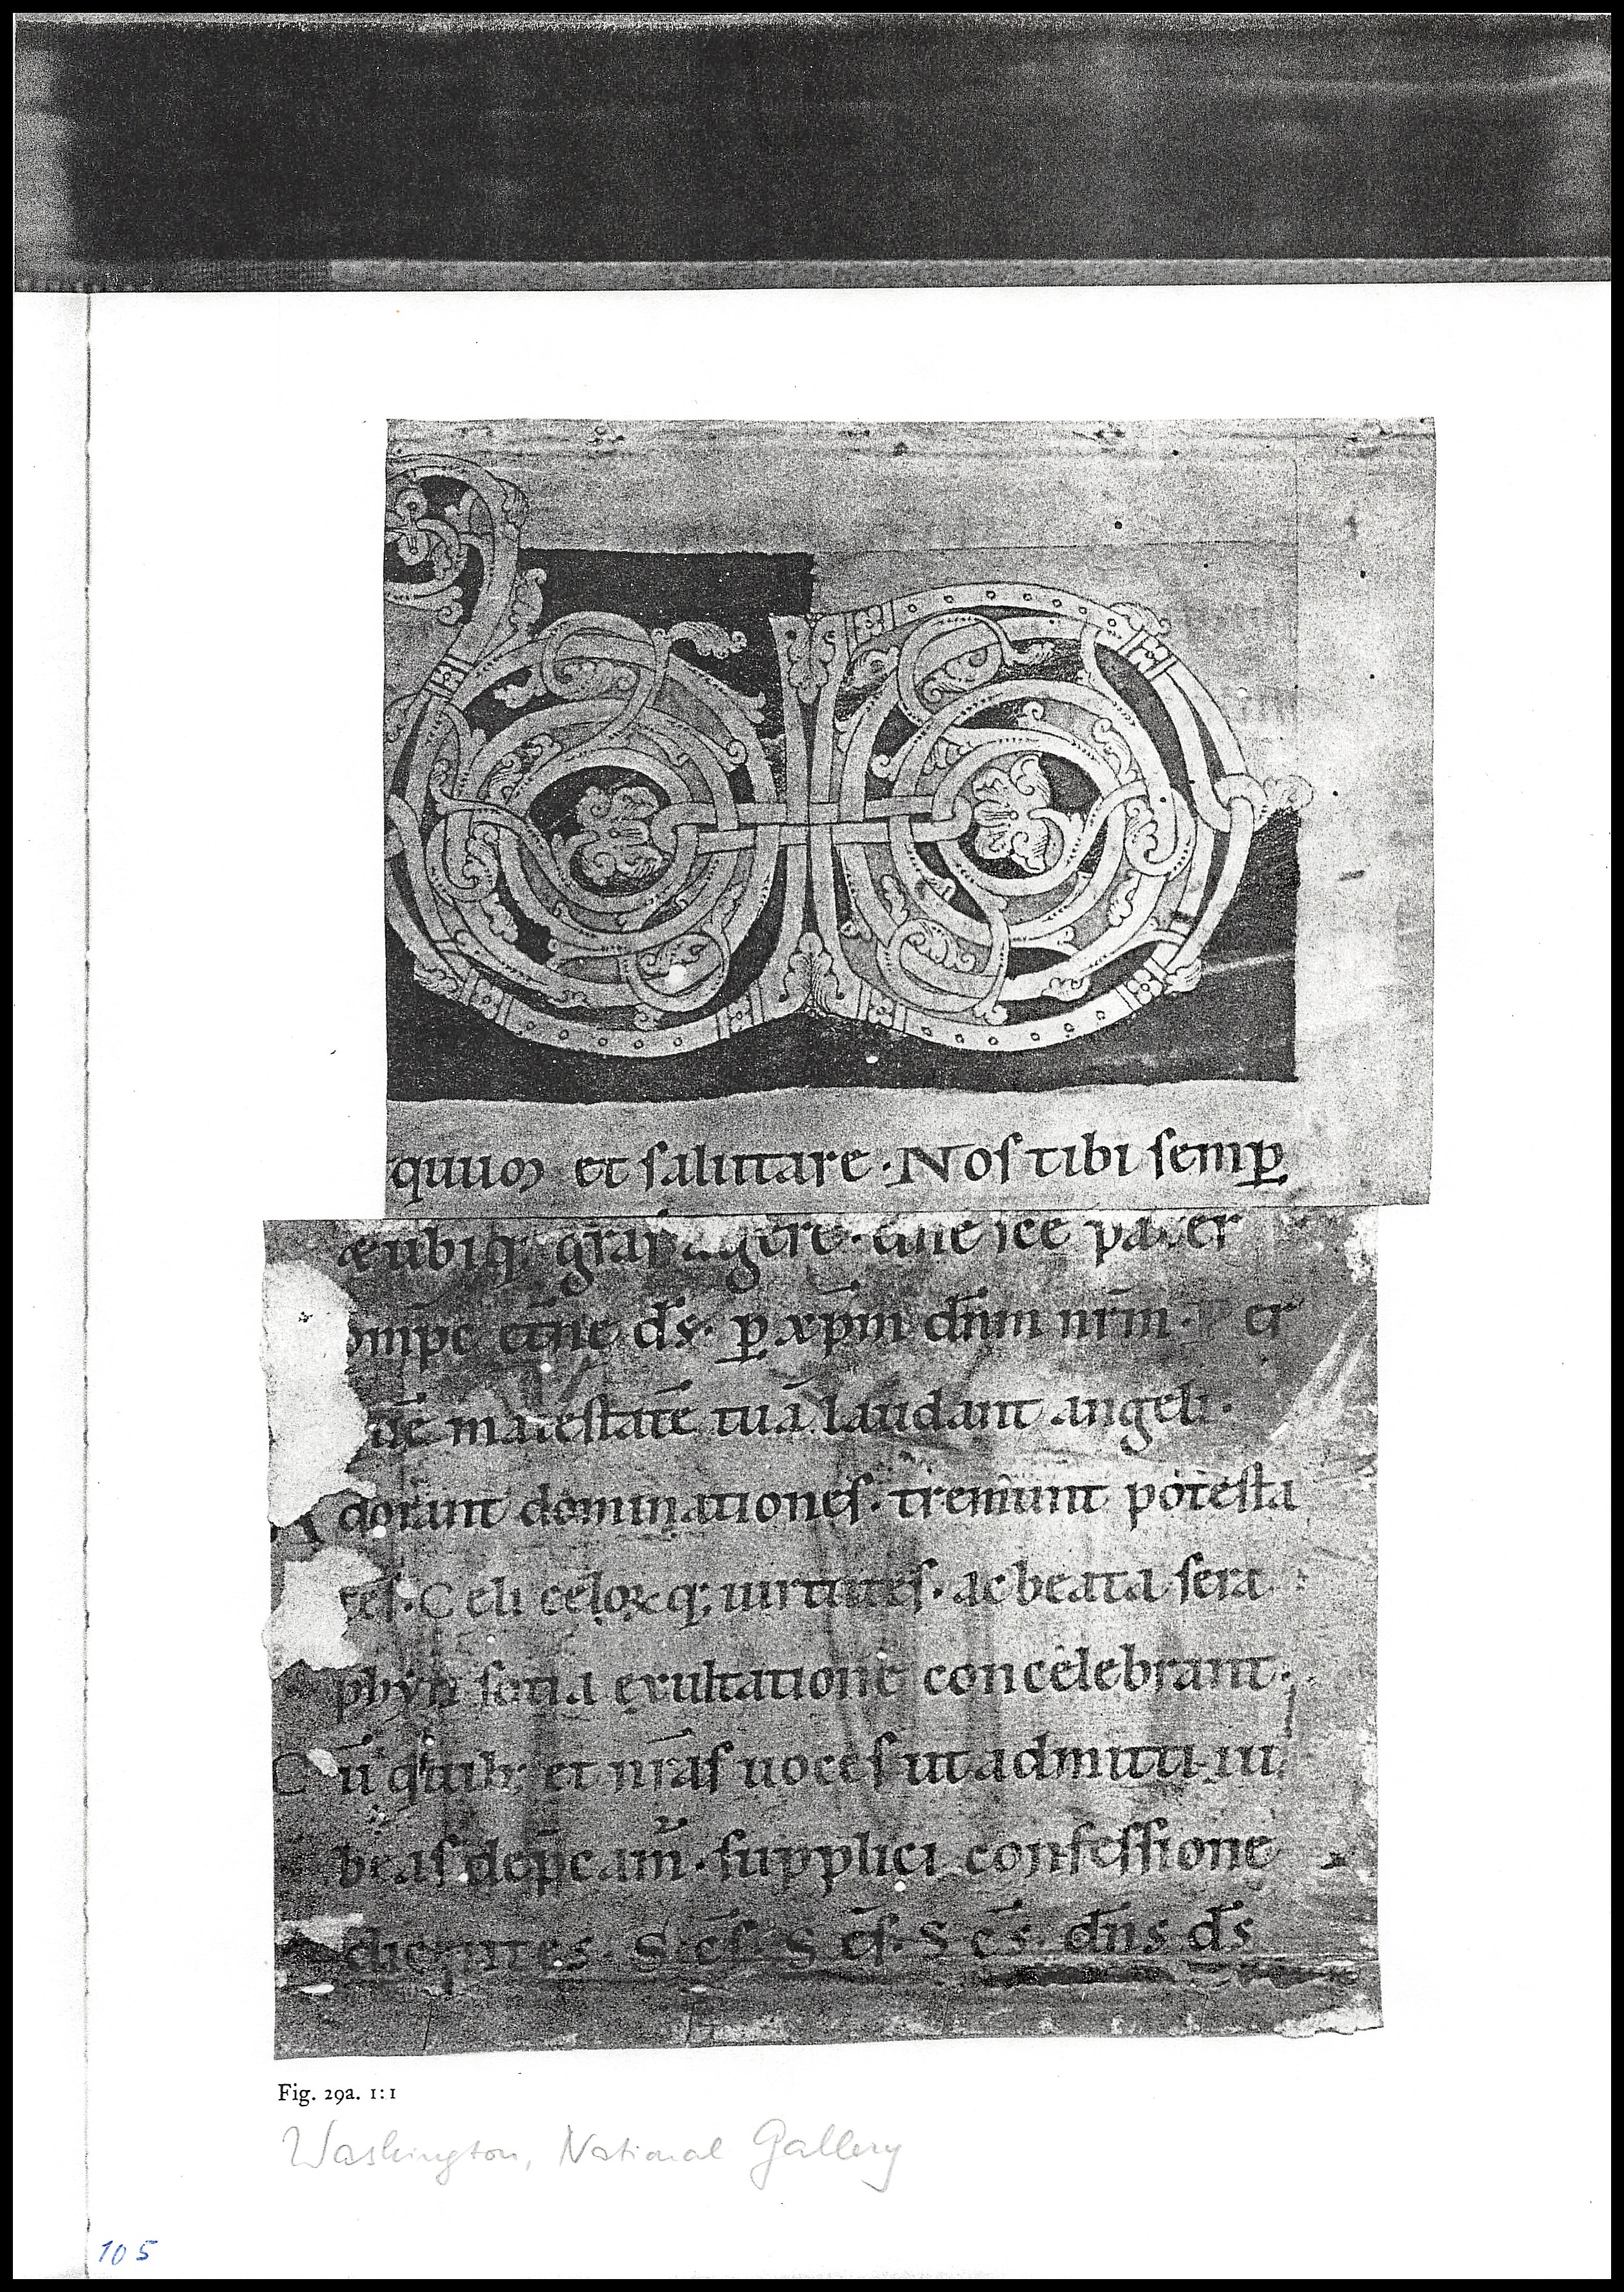 quuƣ et ſaluttare · Noſ tibi ſemꝑ
æ ubiqꝫ gr̄aſ agere ·
ompc etn̄e d̄s · ꝑ xp̄m dn̄m nr̄m · P er
quē maieſtatē tuā laudant angeli ·
A dorant dominationeſ · tremunt poteſta
teſ · C eli celoꝝ qꝫ uirtuteſ · ac beata ſera
phyn ſotia exultatione concelebrant ·
C ū quibꝫ et nr̄aſ uoceſ ut admitti iu
beaſ dep̄camr̄ · ſupplici confeſſione
dicentes · S c̄ſ · S c̄ſ · S c̄s · dn̄s d̄s
Fig. 29a. 1:1
Washington, National Gallery
105